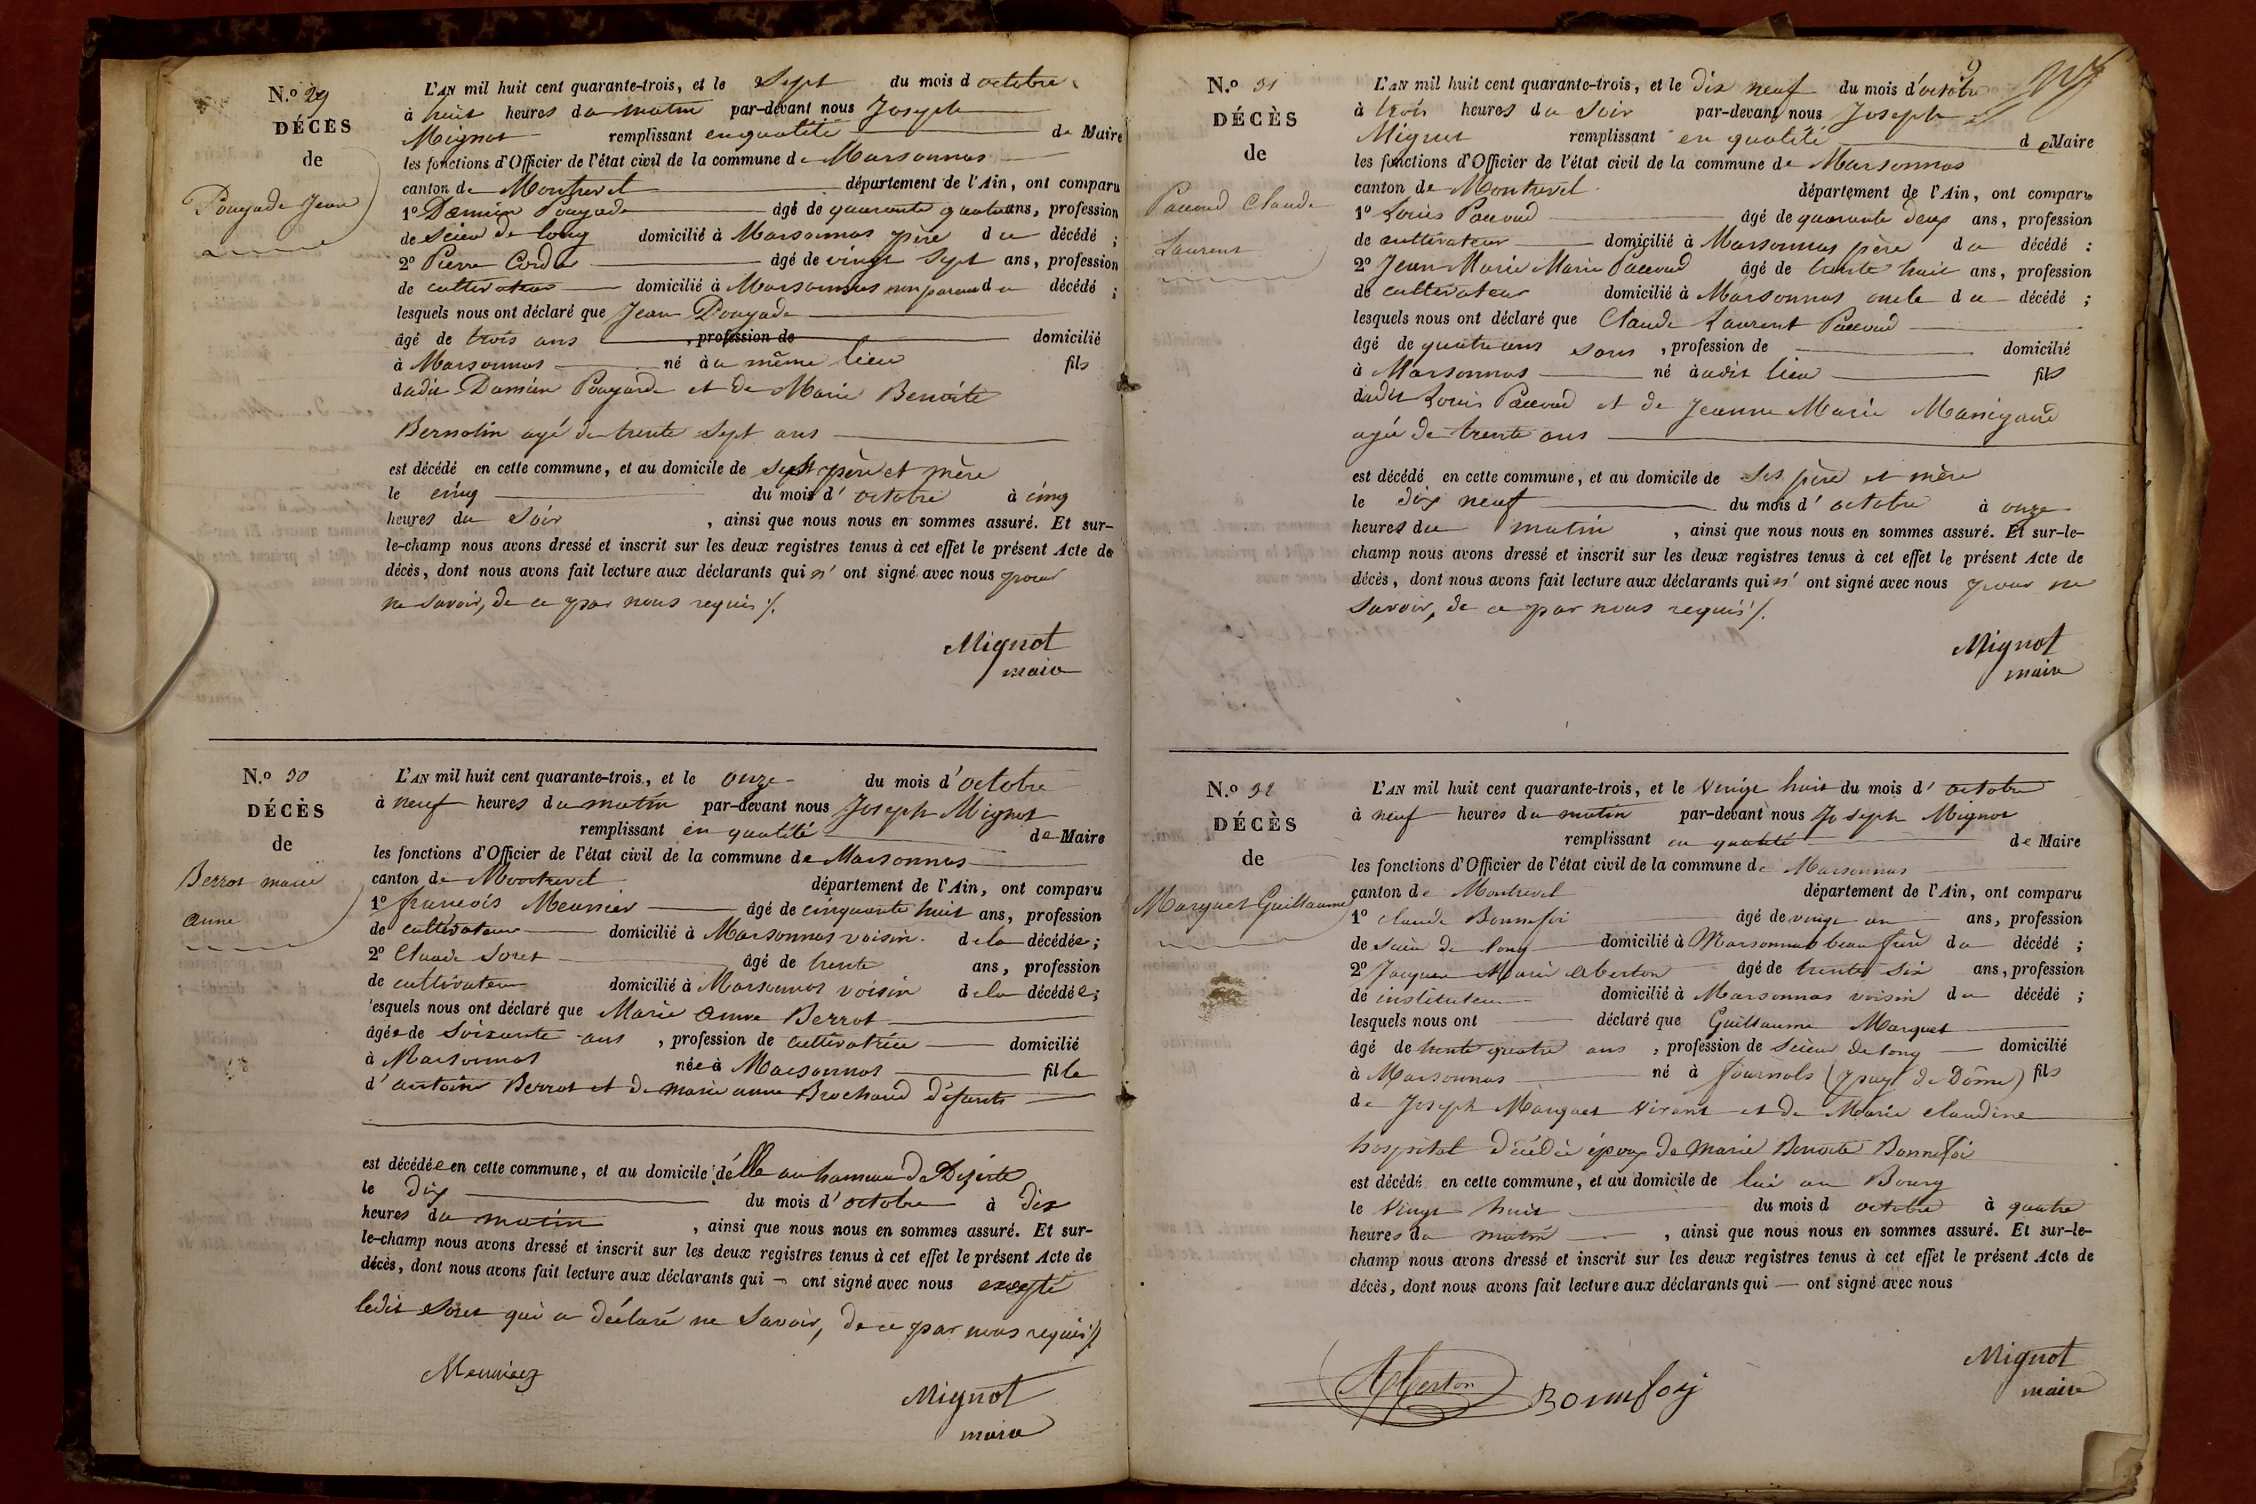 N.o 29
DÉCÈS
de
Pouyade Jean
L'AN mil huit cent quarante-trois, et le Sept du mois d octobre
à huit heures du matin par-devant nous Joseph
Mignot remplissant en qualité de Maire
les fonctions d'Officier de l'état civil de la commune de Marsonnas
canton de Montrevel département de l'Ain, ont comparu
1o Damien Pouyade âgé de quarante quatre ans, profession
de Scieur de long domicilié à Marsonnas père du décédé ;
2o Pierre âgé de vingt Sept ans, profession
de cultivateur domicilié à Marsonnas non parent du décédé ;
lesquels nous ont déclaré que Jean Pouyade
âgé de trois ans , profession de domicilié
à Marsonnas né au même lieu fils
dudit Damien Pouyade et de Marie Benoite
Bernolin agé de trente Sept ans
est décédé en cette commune, et au domicile de père et mère
le cinq du mois d' octobre à cinq
heures du Soir , ainsi que nous nous en sommes assuré. Et sur-
le-champ nous avons dressé et inscrit sur les deux registres tenus à cet effet le présent Acte de
décès, dont nous avons fait lecture aux déclarants qui n' ont signé avec nous pour
ne savoir, de ce par nous requis ./.
Mignot
maire
N.o 30
DÉCÈS
de
Berrot marie
anne
L'AN mil huit cent quarante-trois, et le onze du mois d'octobre
à neuf heures du matin par-devant nous Joseph Mignot
remplissant en qualité de Maire
les fonctions d'Officier de l'état civil de la commune de Marsonnas
canton de Montrevel département de l'Ain, ont comparu
1o francois Meunier âgé de cinquante huit ans, profession
de cultivateur domicilié à Marsonnas voisin de la décédée;
2o Claude Soret âgé de trente ans, profession
de cultivateur domicilié à Marsonnas voisin de la décédée;
lesquels nous ont déclaré que Marie anne Berrot
âgée de Soixante ans , profession de cultivatrice domicilié
à Marsonnas née à Marsonnas fille
d' antoine Berrot et de marie anne Brochand défunts
est décédée en cette commune, et au domicile d'elle au hameau de Dezerte
le dix du mois d'octobre à dix
heures du matin , ainsi que nous nous en sommes assuré. Et sur-
le-champ nous avons dressé et inscrit sur les deux registres tenus à cet effet le présent Acte de
décès, dont nous avons fait lecture aux déclarants qui ont signé avec nous excepté
ledit Soret qui a déclaré ne Savoir, de ce par nous requis ./.
Meunier
Mignot
maire
9
N.o 31
DÉCÈS
de
Pacoud Claude
Laurent
L'AN mil huit cent quarante-trois, et le dix neuf du mois d'octobre
à trois heures du Soir par-devant nous Joseph
Mignot remplissant en qualité de Maire
les fonctions d'Officier de l'état civil de la commune de Marsonnas
canton de Montrevel département de l'Ain, ont comparu
1o Louis Pacoud âgé de quarante deux ans, profession
de cultivateur domicilié à Marsonnas père du décédé ;
2o Jean Marie Marie Pacoud âgé de trente huit ans, profession
de cultivateur domicilié à Marsonnas oncle du décédé ;
lesquels nous ont déclaré que Claude Laurent Pacoud
âgé de quatre ans sans , profession de domicilié
à Marsonnas né audit lieu fils
dudit Louis Pacoud et de Jeanne Marie Manigand
agée de trente ans
est décédé en cette commune, et au domicile de Ses père et mère
le dix neuf du mois d' octobre à onze
heures du matin , ainsi que nous nous en sommes assuré. Et sur-le-
champ nous avons dressé et inscrit sur les deux registres tenus à cet effet le présent Acte de
décès, dont nous avons fait lecture aux déclarants qui n' ont signé avec nous pour ne
savoir, de ce par nous requis ./.
Mignot
maire
N.o 32
DÉCÈS
de
Marquet Guillaume
L'AN mil huit cent quarante-trois, et le vingt huit du mois d' octobre
à neuf heures du matin par-devant nous Joseph Mignot
remplissant en qualité de Maire
les fonctions d'Officier de l'état civil de la commune de Marsonnas
canton de Montrevel département de l'Ain, ont comparu
1o claude Bonnefoi âgé de vingt un ans, profession
de Scieur de long domicilié à Marsonnas beau frère du décédé ;
2o Jacques Marie Aberton âgé de trente Six ans, profession
de instituteur domicilié à Marsonnas voisin du décédé ;
lesquels nous ont déclaré que Guillaume Marquet
âgé de trente quatre ans , profession de Scieur de long domicilié
à Marsonnas né à fournols (puy de Dôme) fils
de Joseph Marquet vivant et de Marie claudine
hospital décédée époux de marie Benoite Bonnefoi
est décédé en cette commune, et au domicile de lui au Bourg
le vingt huit du mois d octobre à quatre
heures du matin , ainsi que nous nous en sommes assuré. Et sur-le-
champ nous avons dressé et inscrit sur les deux registres tenus à cet effet le présent Acte de
décès, dont nous avons fait lecture aux déclarants qui ont signé avec nous
Aberton
Bonnefoy
Mignot
maire